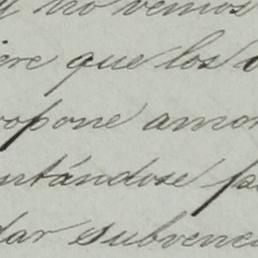 y no vemos
ere que los
opone amor
ntándose pa
dar subvenci